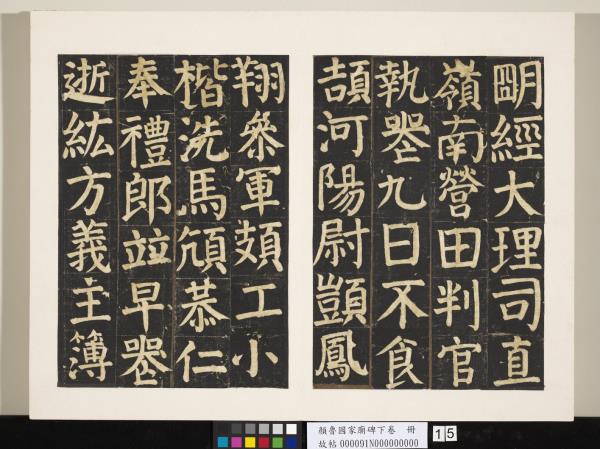 朙經大理司直
嶺南營田判官
執喪九日不食
頡河陽尉顗鳳
翔參軍工小
楷洗馬恭仁
奉禮郎竝早喪
逝紘方義主簿
顏魯國家廟碑下卷 冊
故帖 000091N000000000
15